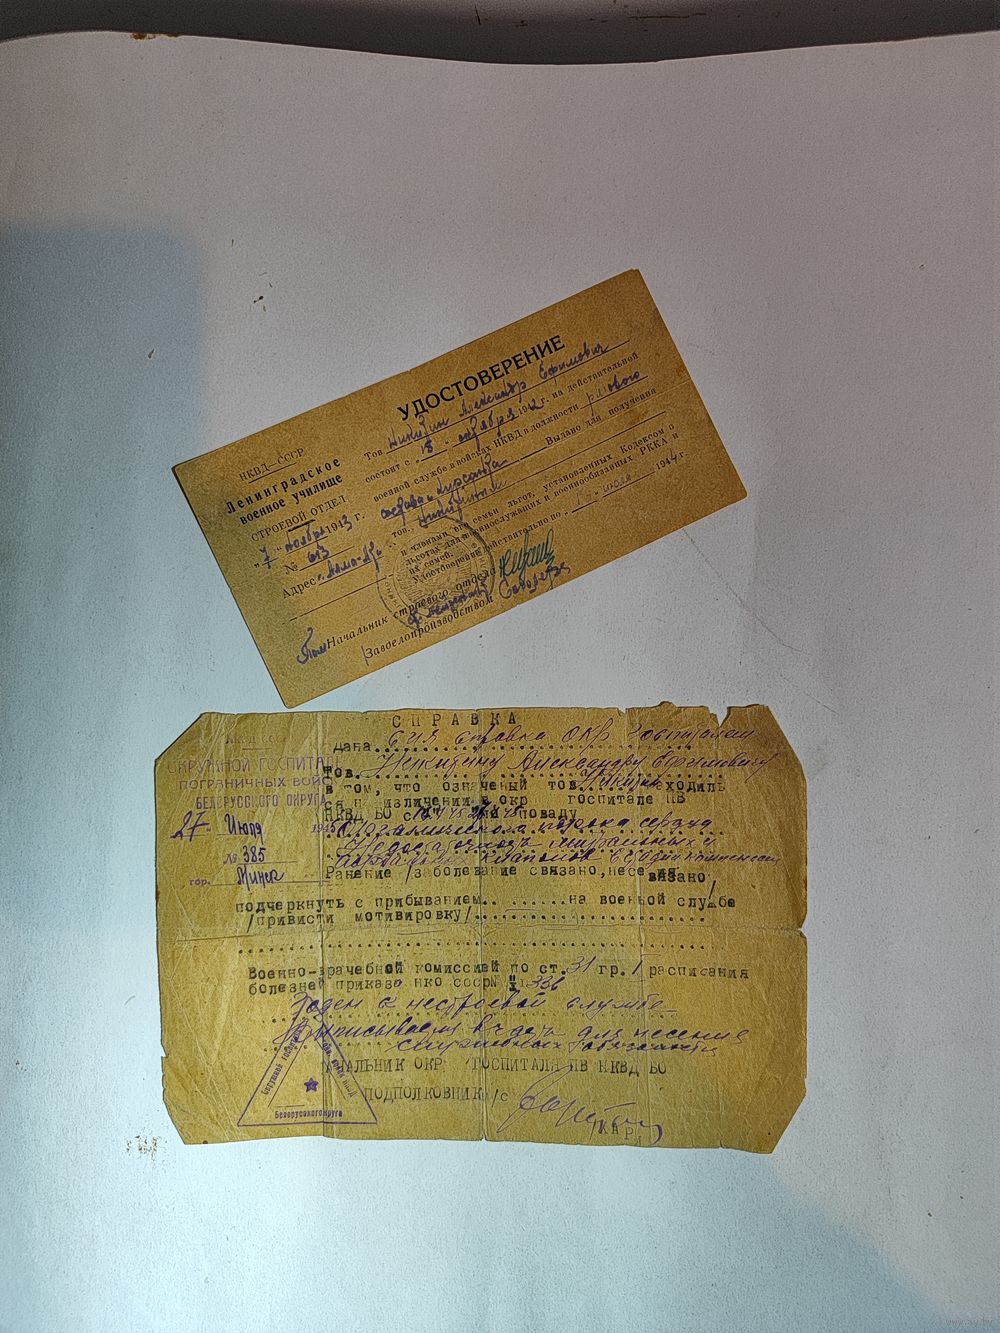 УДОСТОВЕРЕНИЕ
НКВД—СССР
Ленинградское
военное училище
СТРОЕВОЙ ОТДЕЛ
"7" ноября 1943 г.
№ 613
Адрес г. Алма-Ата
Тов Никитин Александр Ефимович
состоит с 18 октября 1942 г. на действительной
военной службе в войсках НКВД в должности рядового
состава курсанта Выдано для получения
тов. Никитиным
и членами его семьи льгот, установленных Кодексом о
льготах для военнослужащих и военнообязанных РККА и
их семей.
Удостоверение действительно по "1" июля 1944 г.
Пом Начальник строевого отдела
Завделопроизводством
СПРАВКА
НКВД СССР
ОКРУЖНОЙ ГОСПИТАЛЬ
ПОГРАНИЧНЫХ ВОЙСК
БЕЛОРУССКОГО ОКРУГА
27 Июля 1945
№ 385
гор. Минск
дана сия справка окр. госпиталем
тов. Никитину Александру Ефимовичу
в том, что означеный тов. Никитин находиль
ся на изличении в окр госпитале ПВ
НКВД БО с по поводу
порока сердца
Недостаточность митральных и
клапанов в стадии компенсации
Ранение /заболевание связано, несвязано,
подчеркнуть с прибыванием на военой службе
/привисти мотивировку/
Военно-врачебной комиссией по ст. 31 гр. I расписания
болезней приказа НКО СССР № 336
Годен к нестроевой службе
Выписывается в часть для несения
служебных обязанностей
НАЧАЛЬНИК ОКР ГОСПИТАЛЯ ПВ НКВД БО
ПОДПОЛКОВНИК м/с
/КАР
Белорусского округа
www.ay.by